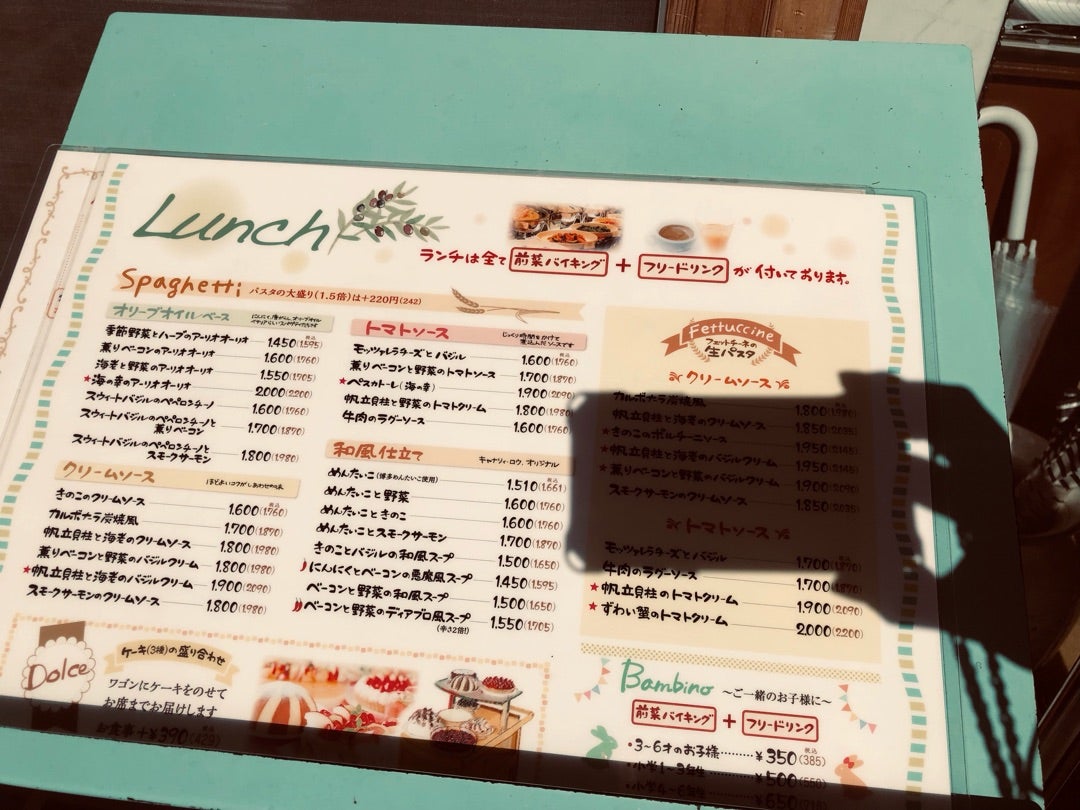 Lunch
ランチは全て 前菜バイキング + フリードリンク が付いております。
Spaghetti パスタの大盛り(1.5倍)は+220円(242)
オリーブオイルベース
季節野菜とハーブのアーリオオーリオ 1.450 税込 (1.595)
薫りベーコンのアーリオオーリオ 1.600(1.760)
海老と野菜のアーリオオーリオ 1.550(1.705)
★海の幸のアーリオオーリオ 2.000(2.200)
スウィートバジルのペペロンチーノ 1.600(1.760)
スウィートバジルのペペロンチーノと
薫りベーコン 1.700(1.870)
スウィートバジルのペペロンチーノと
スモークサーモン 1.800(1.980)
クリームソース
きのこのクリームソース 1.600 税込 (1.760)
カルボナラ炭焼風 1.700(1.870)
帆立貝柱と海老のクリームソース 1.800(1.980)
薫りベーコンと野菜のバジルクリーム 1.800(1.980)
★帆立貝柱と海老のバジルクリーム 1.900(2.090)
スモークサーモンのクリームソース 1.800(1.980)
トマトソース じっくり時間をかけて
煮込んだソースです
モッツァレラチーズとバジル 1.600 税込 (1.760)
薫りベーコンと野菜のトマトソース 1.700(1.870)
★ペスカトーレ(海の幸) 1.900(2.090)
帆立貝柱と野菜のトマトクリーム 1.800(1.980)
牛肉のラグーソース 1.600(1.760)
和風仕立て キャナリィ・ロウ、オリジナル
めんたいこ(博多めんたいこ使用) 1.510 税込 (1.661)
めんたいこと野菜 1.600(1.760)
めんたいこときのこ 1.600(1.760)
めんたいことスモークサーモン 1.700(1.870)
きのことバジルの和風スープ 1.500(1.650)
にんにくとベーコンの悪魔風スープ 1.450(1.595)
ベーコンと野菜の和風スープ 1.500(1.650)
ベーコンと野菜のディアブロ風スープ 1.550(1.705)
(辛32倍!)
Fettuccine
フェットチーネの
生パスタ
クリームソース
カルボナラ炭焼風 1.800(1.980)
帆立貝柱と海老のクリームソース 1.850(2.035)
★きのこのポルチーニソース 1.950(2.145)
★帆立貝柱と海老のバジルクリーム 1.950(2.145)
★薫りベーコンと野菜のバジルクリーム 1.900(2.090)
スモークサーモンのクリームソース 1.850(2.035)
トマトソース
モッツァレラチーズとバジル 1.700(1.870)
牛肉のラグーソース 1.700(1.870)
★帆立貝柱のトマトクリーム 1.900(2.090)
★ずわい蟹のトマトクリーム 2.000(2.200)
Dolce
ケーキ(3種)の盛り合わせ
ワゴンにケーキをのせて
お席までお届けします
お食事+¥390(429)
Bambino 〜ご一緒のお子様に〜
前菜バイキング + フリードリンク
・3〜6才のお子様………¥350 税込 (385)
・小学1〜3年生 ¥500(550)
・小学4〜6年生 ¥650(715)